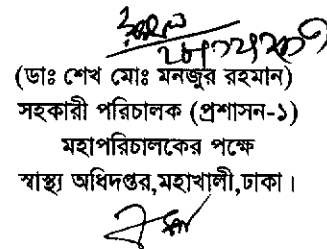 (ডাঃ শেখ মোঃ মনজুর রহমান)
সহকারী পরিচালক (প্রশাসন-১)
মহাপরিচালকের পক্ষে
স্বাস্থ্য অধিদপ্তর,মহাখালী,ঢাকা।